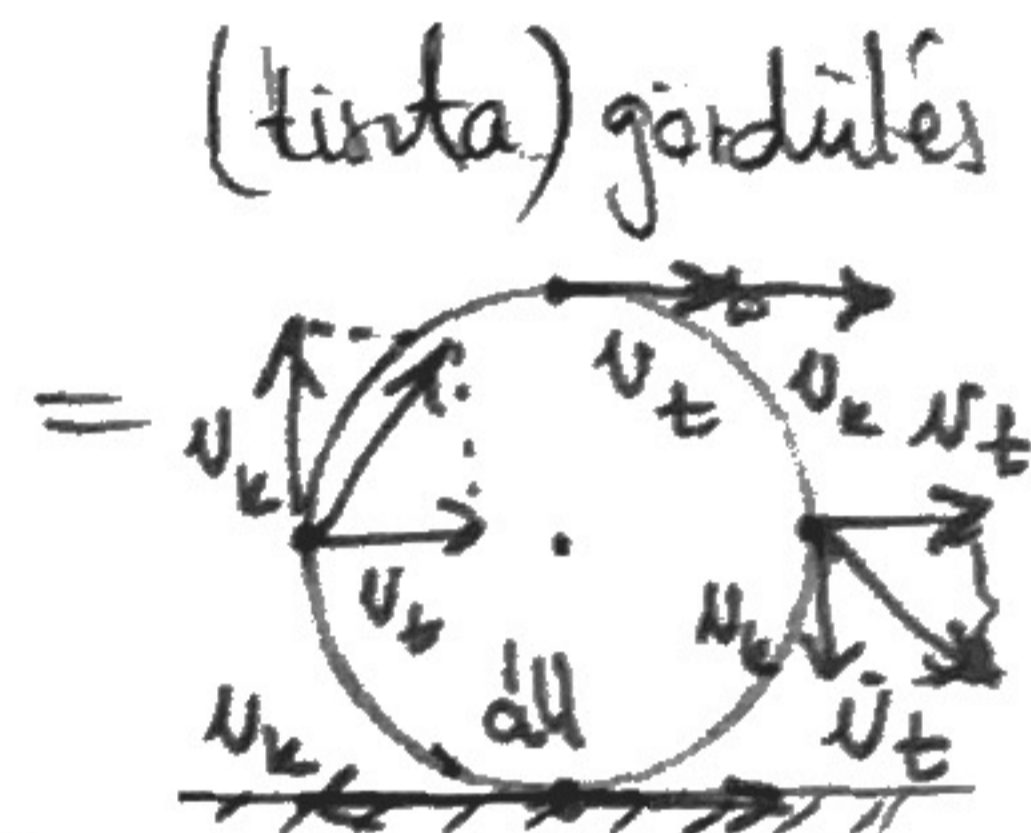 (tiszta) gördülés
v_t v_k v_t
= v_k
v_t v_k
v_k áll v_t